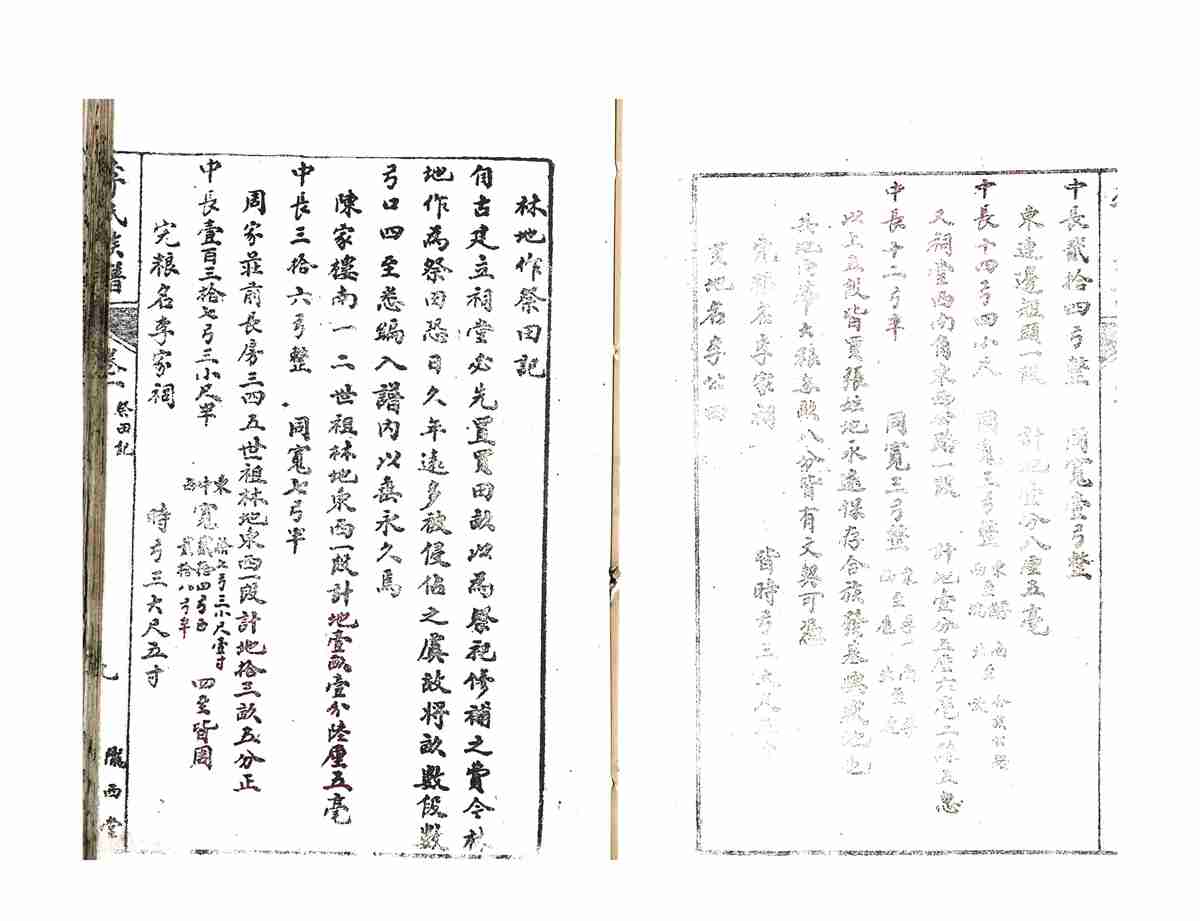 林地作祭田記
自古建立祠堂必先置買田畝以為祭祀修補之費今林
地作為祭田恐日久年遠多被侵佔之虞故將畝數段數
弓口四至悉編入譜內以垂永久焉
陳家樓南一二世祖林地東西一段計地壹畝壹分陸厘五毫
中長三拾六弓整 同寬七弓半
周家莊前長房三四五世祖林地東西一段計地拾三畝五分正
中長壹百三拾七弓三小尺半 東中西寬 拾七弓三小尺壹寸 貳拾四弓正 貳拾八弓半 四至皆周
完粮名李家祠 時弓三大尺五寸
李氏族譜 卷一 祭田記 九 隴西堂
中長貳拾四弓整 同寬壹弓整
東連邊短頭一段 計地壹分八厘五毫
中長十四弓四小尺 同寬三弓整 東至 西至 南至 北至
又祠堂西南角東西 路一段 計地壹分五厘六毫二絲五忽
中長十二弓半 同寬三弓整 東至 西至 南至 北至
以上五段皆買張姓地永遠保存合族發基興盛地也
其地 大張 畝八分皆有文契可憑
完粮名李家祠 皆時弓三大尺五寸
買地名李公田